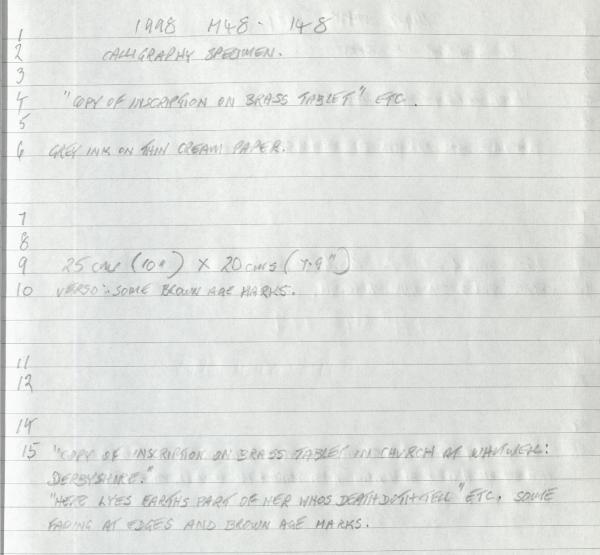 1998 M48. 148
1
2 CALLIGRAPHY SPECIMEN.
3
4 "COPY OF INSCRIPTION ON BRASS TABLET" ETC.
5
6 GREY INK ON THIN CREAM PAPER.
7
8
9 25 cms (10") X 20 cms (7.9")
10 VERSO:- SOME BROWN AGE MARKS.
11
12
14
15 "COPY OF INSCRIPTION ON BRASS TABLET IN CHURCH AT WHITWELL:
DERBYSHIRE."
"HERE LYES EARTHS PART OF HER WHOS DEATH DOTH TELL" ETC. SOME
FADING AT EDGES AND BROWN AGE MARKS.